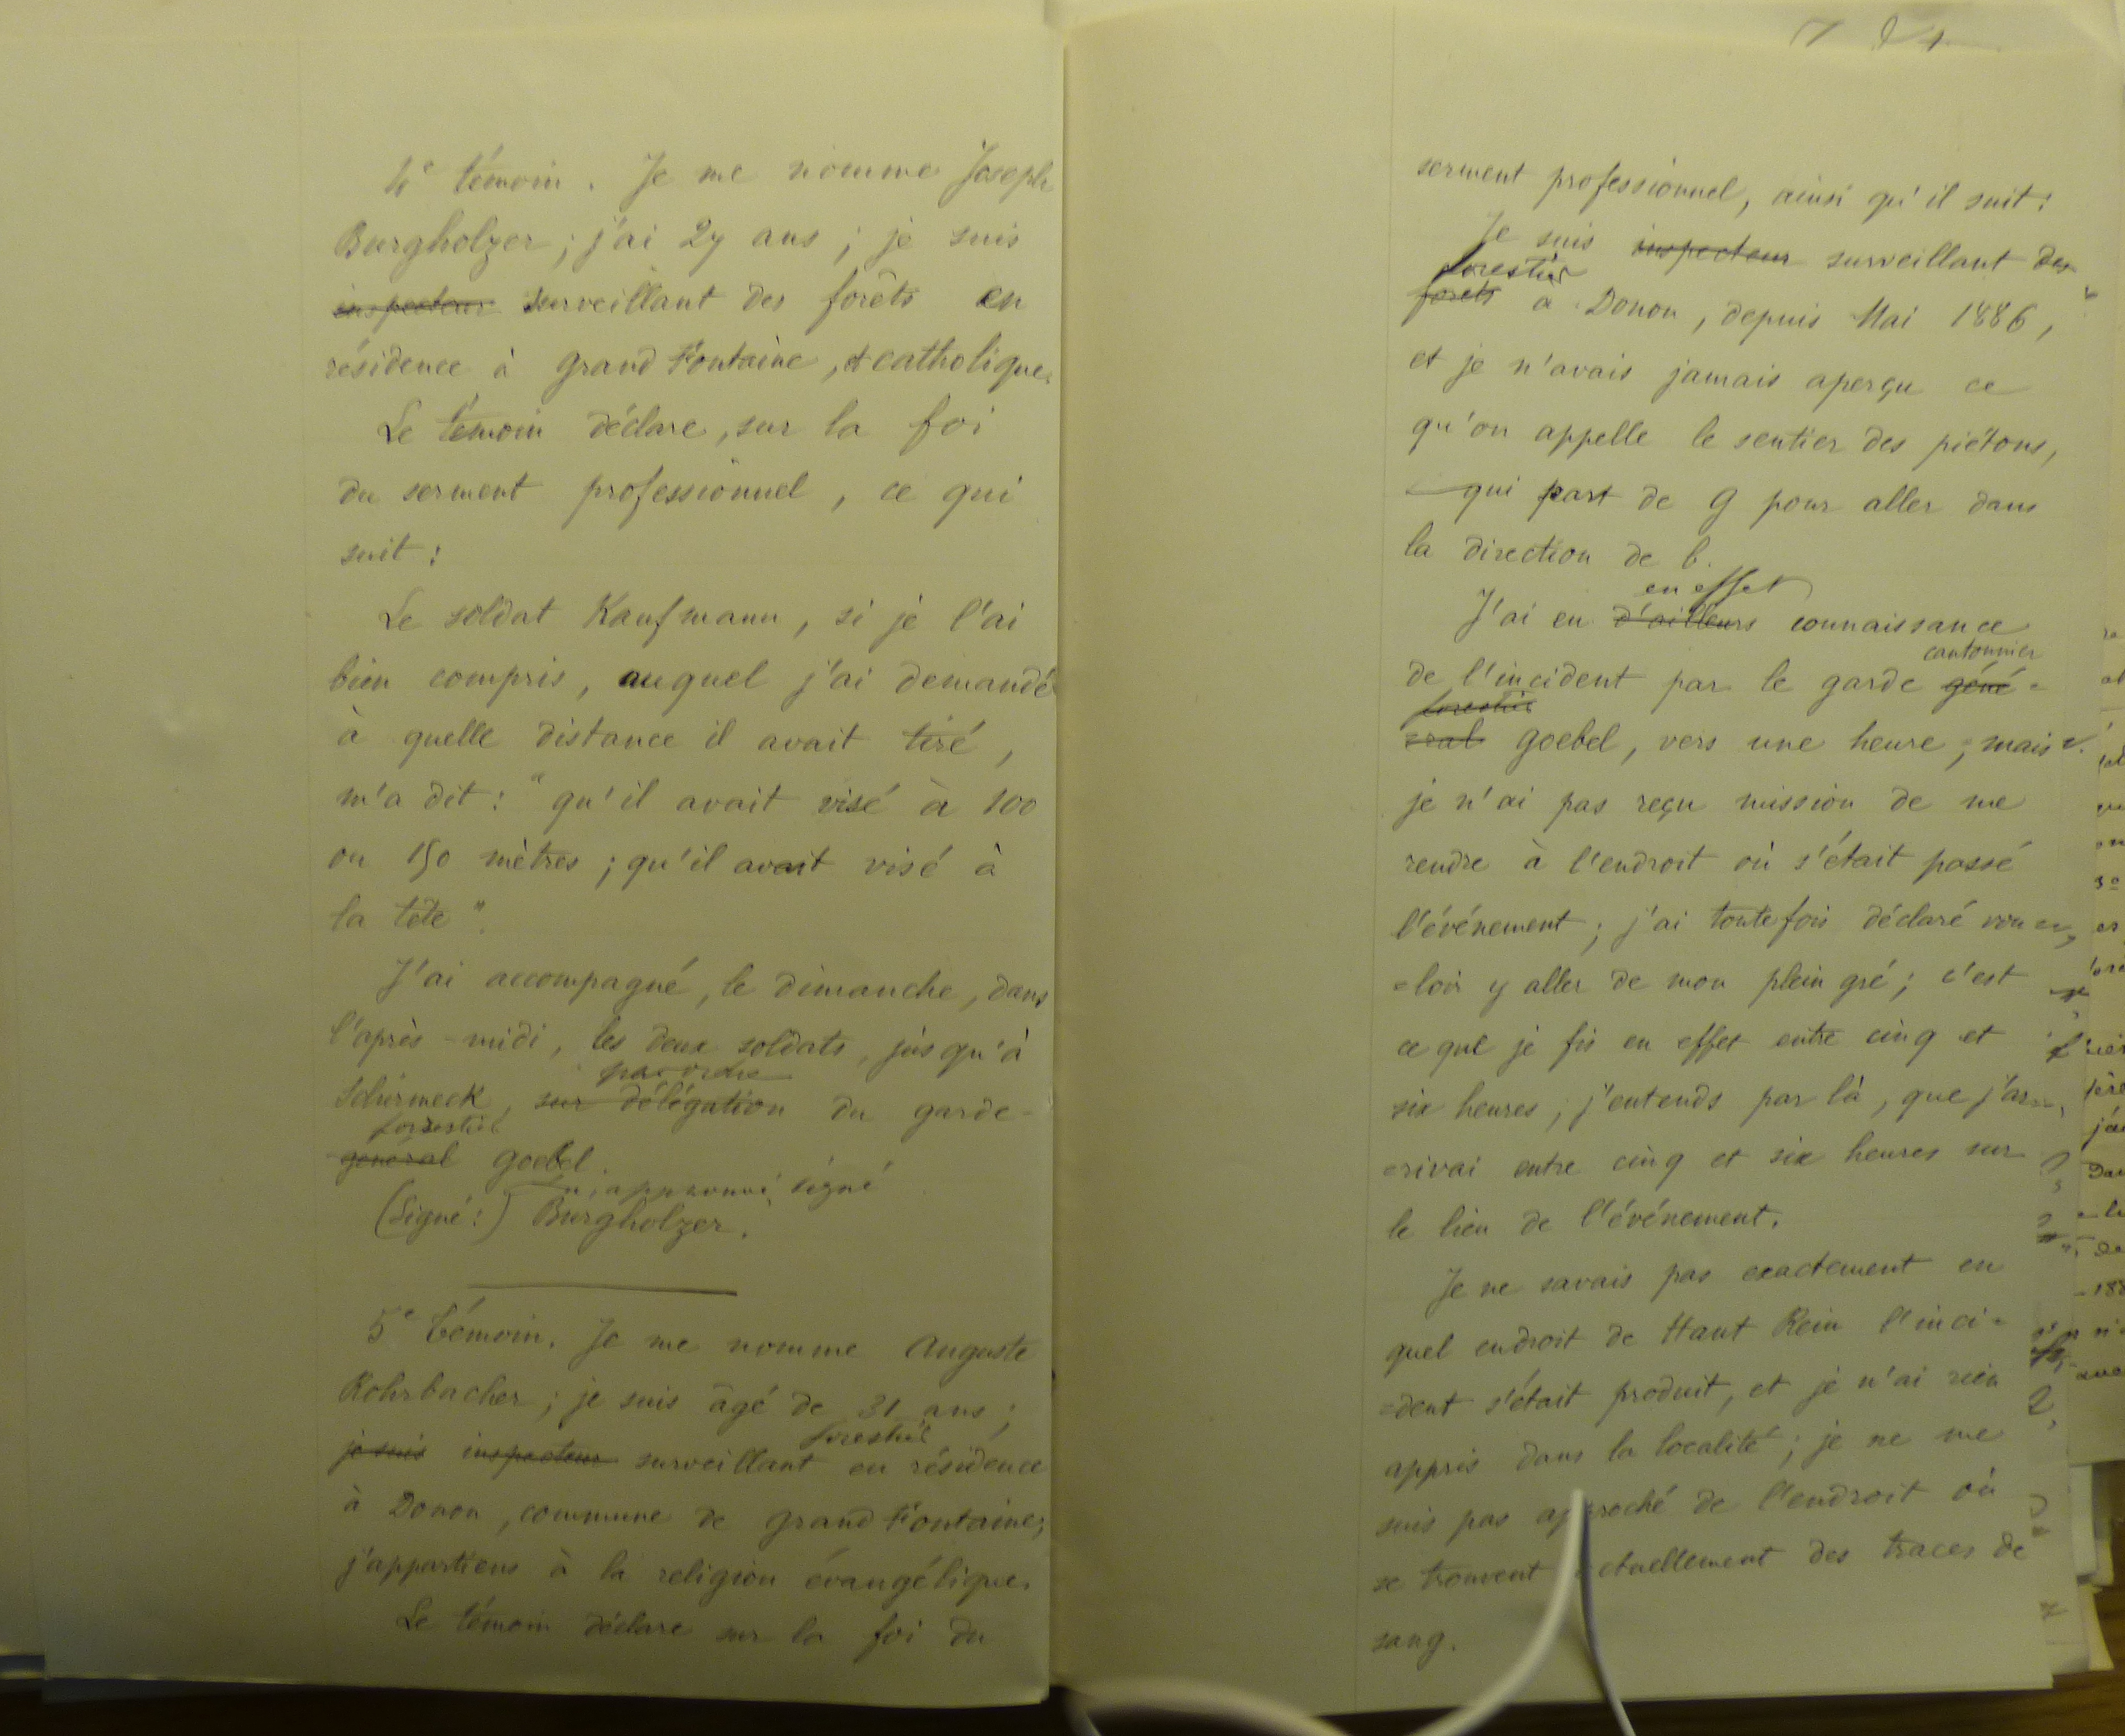 4e témoin. Je me nomme Joseph
Burgholzer; j'ai 27 ans; je suis
inspecteur surveillant des forêts en
résidence à Grand Fontaine, et catholique.
Le témoin déclare, sur la foi
du serment professionnel, ce qui
suit:
Le soldat Kaufmann, si je l'ai
bien compris, auquel j'ai demandé
à quelle distance il avait tiré,
m'a dit: "qu'il avait visé à 100
ou 150 mètres; qu'il avait visé à
la tête".
J'ai accompagné, le dimanche, dans
l'après-midi, les deux soldats, jusqu'à
par ordre
Schirmeck, sur délégation du garde-
forestier
général Goebel.
lu, approuvé, signé
(Signé:) Burgholzer.
5e témoin. Je me nomme Auguste
Rohrbacher; je suis âgé de 31 ans;
forestier
je suis inspecteur surveillant en résidence
à Donon, commune de Grand Fontaine;
j'appartiens à la religion évangélique.
Le témoin déclare sur la foi du
serment professionnel, ainsi qu'il suit:
Je suis inspecteur surveillant des
forestier
forêts à Donon, depuis Mai 1886,
et je n'avais jamais aperçu ce
qu'on appelle le sentier des piétons,
qui part de g pour aller dans
la direction de b.
en effet
J'ai eu d'ailleurs connaissance
cantonnier
de l'incident par le garde géné=
forestier
=ral Goebel, vers une heure; mais
je n'ai pas reçu mission de me
rendre à l'endroit où s'était passé
l'événement; j'ai toutefois déclaré vou=
=loir y aller de mon plein gré; c'est
ce que je fis en effet entre cinq et
six heures; j'entends par là, que j'ar=
=rivai entre cinq et six heures sur
le lieu de l'événement.
Je ne savais pas exactement en
quel endroit de Haut Rein l'inci=
=dent s'était produit, et je n'ai rien
appris dans la localité; je ne me
suis pas approché de l'endroit où
se trouvent actuellement des traces de
sang.